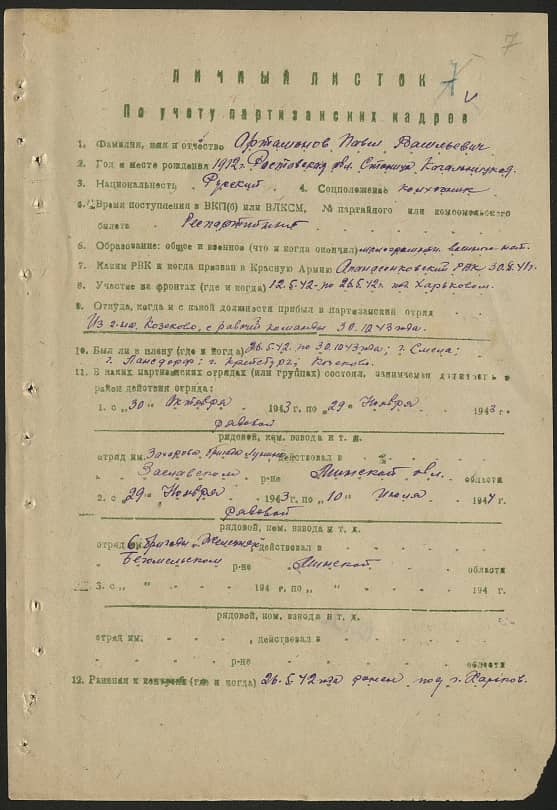 7
ЛИЧНЫЙ ЛИСТОК
По учету партизанских кадров
1. Фамилия, имя и отчество Артамонов Павел Васильевич
2. Год и место рождения 1912 г. Ростовская обл. Станица
3. Национальность Русский 4. Соцположение колхозник
5. Время поступления в ВКП(б) или ВЛКСМ, № партийного или комсомольского
билета Беспартийный
6. Образование: общее и военное (что и когда окончил)
7. Каким РВК и когда призван в Красную Армию Апанасенковский РВК
8. Участие на фронтах (где и когда) 12.5.42 по 26.5.42 г. под Харьковом.
9. Откуда, когда и с какой должности прибыл в партизанский отряд
Из Козеково, с рабочей команды 30.10.43 года.
10. Был ли в плену (где и когда) 26.5.42. по 30.10.43 года; г. Смела;
Козеково.
11. В каких партизанских отрядах (или группах) состоял, занимаемая должность и
район действия отряда:
1. с „30" Октября 1943 г. по „29" Ноября 1943 г.
рядовой
рядовой, ком. взвода и т. д.
отряд им. действовал в
Заславском р-не Минской обл. области
2. с „29" Ноября 1943 г. по „10" Июля 1944 г.
рядовой
рядовой, ком. взвода и т. д.
отряд им. бригады действовал в
р-не Минской области
3. с „ " 194 г. по „ " 194 г.
рядовой, ком. взвода и т. д.
отряд им. , действовал в
р-не области
12. Ранения и контузии (где и когда) 26.5.42 года ранен под г. Харьков.